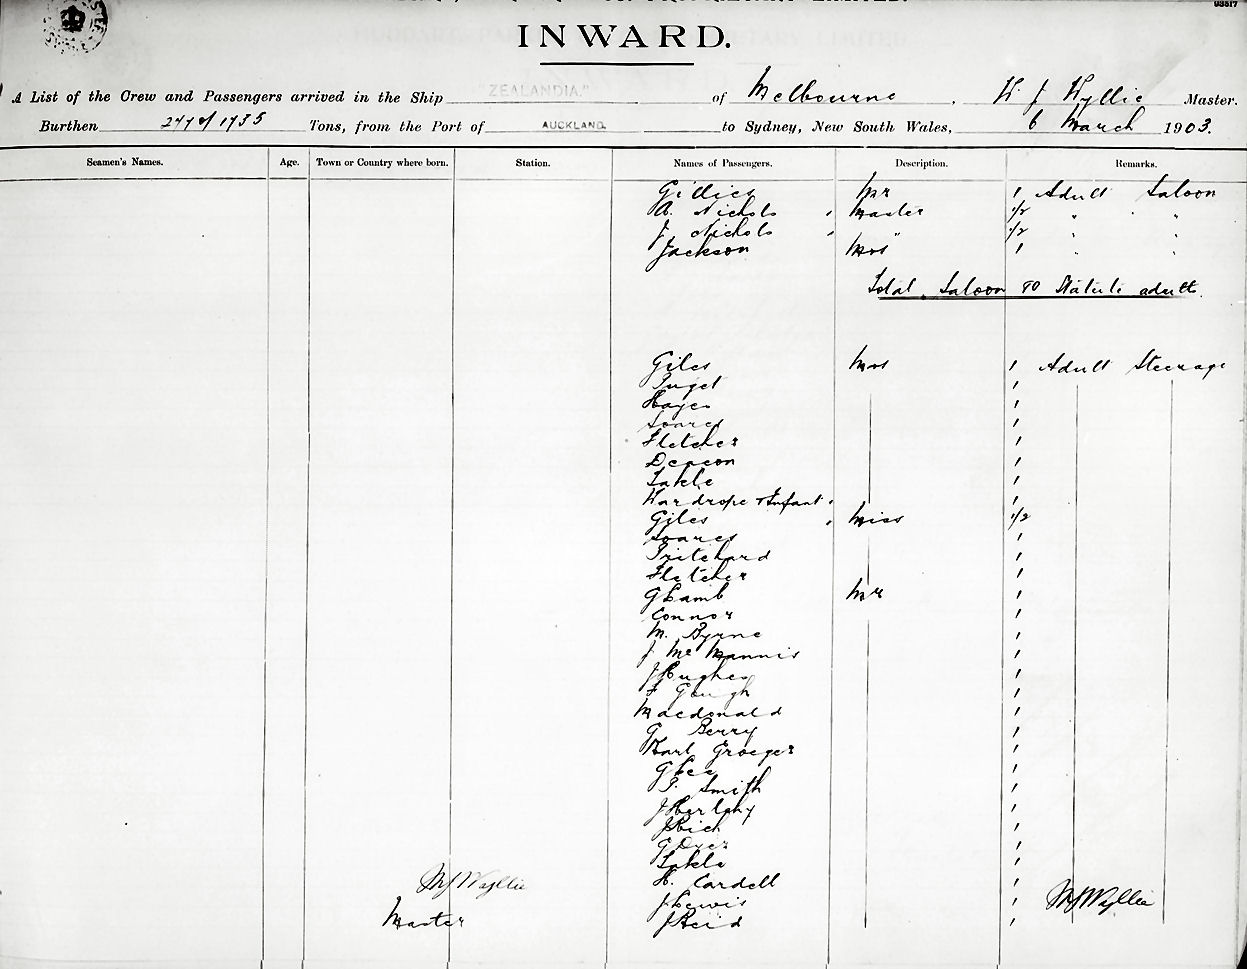 93517
INWARD.
A List of the Crew and Passengers arrived in the Ship "ZEALANDIA." of Melbourne, W J Wyllie Master.
Burthen 2771/1735 Tons, from the Port of AUCKLAND. to Sydney, New South Wales, 6 March 1903.
Seamen's Names. Age. Town or Country where born. Station. Names of Passengers. Description. Remarks.
Gillies Mr 1 Adult Saloon
A. Nichols Master 1/2 " " "
J. Nichols " 1/2 " " "
Jackson Mrs 1 " "
Total Saloon 80 Statute adults
Giles Mrs 1 Adult Steerage
Puget 1
Hayes 1
Soares 1
Fletcher 1
Deacon 1
Lakle 1
Wardrope & Infant 1
Giles Miss 1/2
Soares 1
Pritchard 1
Fletcher 1
G Lamb Mr 1
Connor 1
M. Byrne 1
J McMannis 1
J Hughes 1
F Gough 1
Macdonald 1
G Berry 1
Karl Groeger 1
G Lee 1
P. Smith 1
J Herlihy 1
J Rich 1
G Dyer 1
Lakle 1
H. Cardell 1
WJ Wyllie J Lewis 1 WJ Wyllie
Master J Reid 1